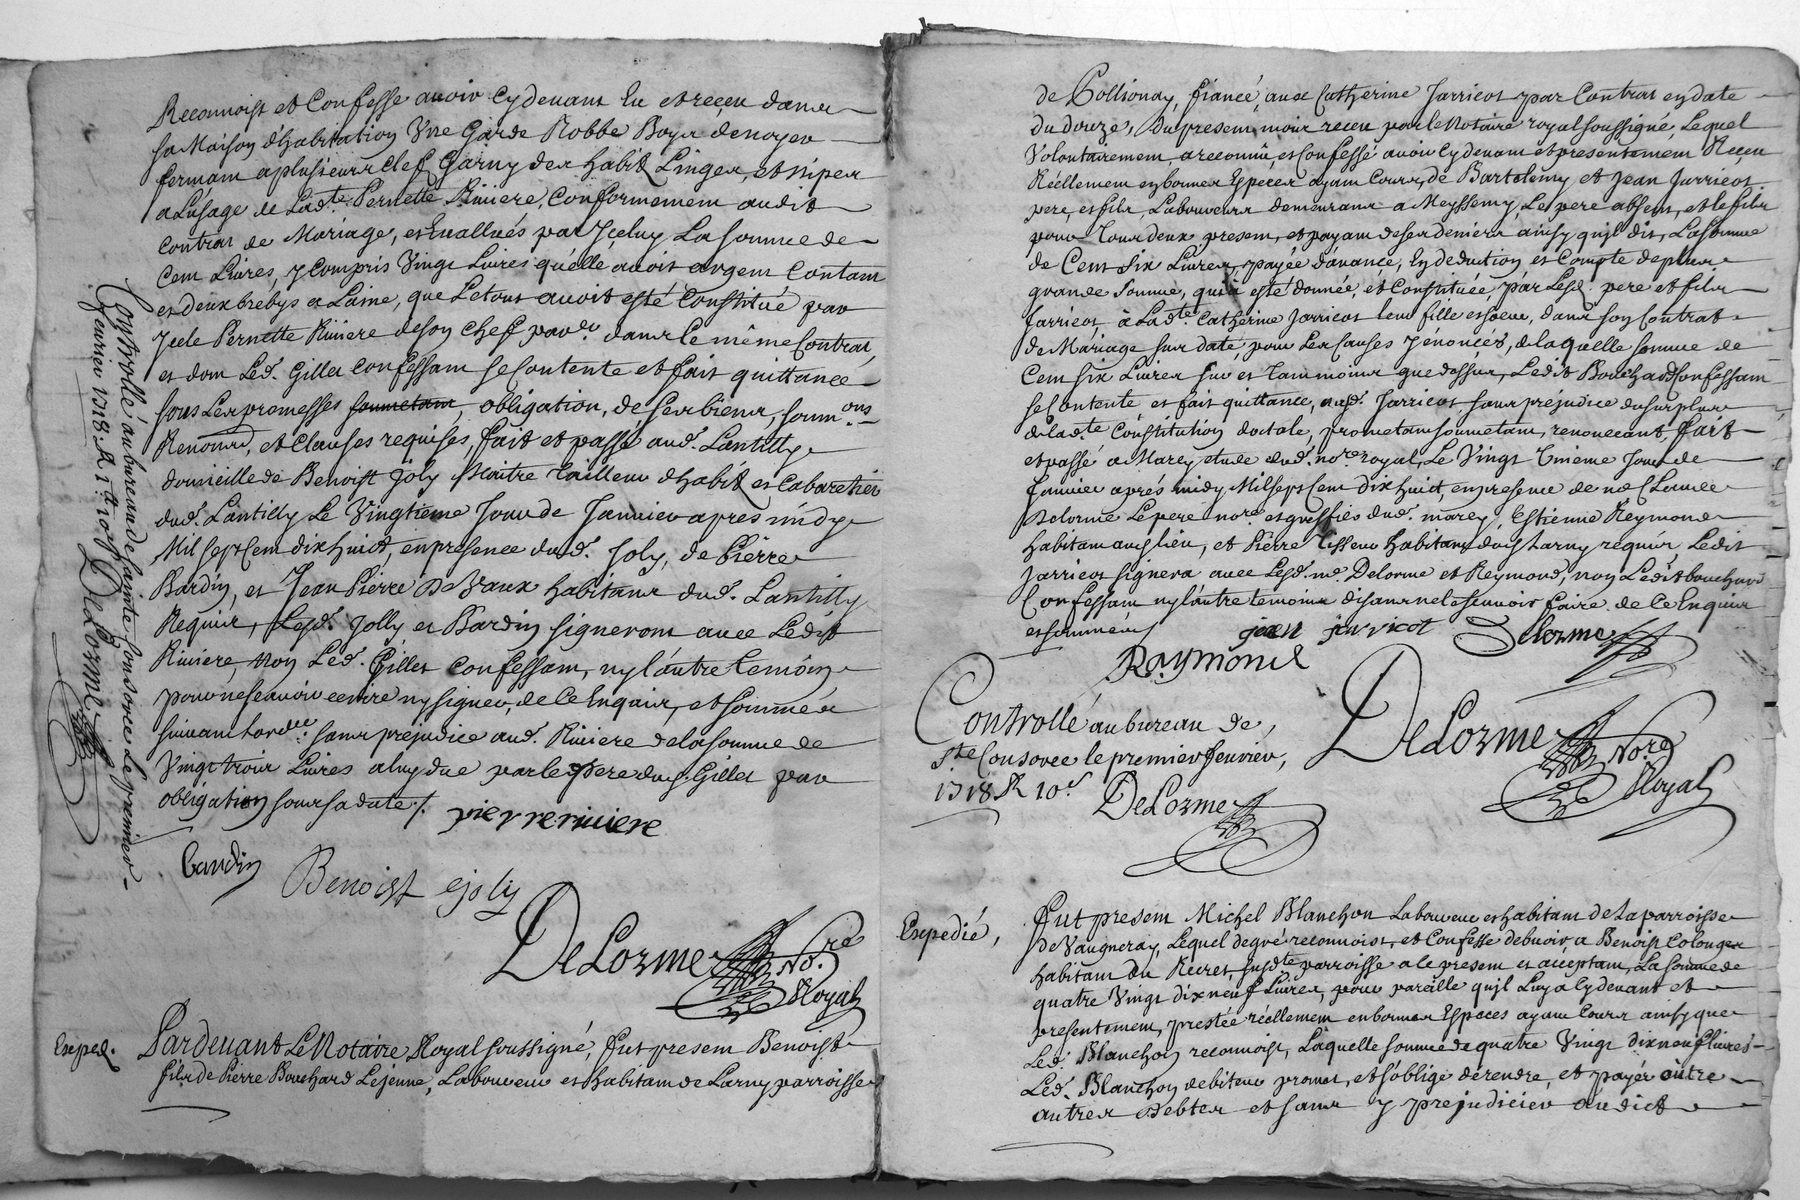 Reconnoist et Confesse avoir Cydevant Eu et reçeu dans
sa Maison d'habitation Une Garde Robbe Boys denoyer
fermam a plusieurs Clef Garny des habitz Linges, et nipes
a Lusage de Ladte. Pernette Riviere, Conformement audit
Contrat de Mariage, et Evallués par Iceluy La somme de
Cent Livres, y Compris Vingt Livres qu'elle avoit argent Contant
et deux brebys a Laine, que Letout avoit esté Constitué par
Icele Pernette Riviere deson Chef parder. dans Le même Contrat,
et dont Led. Gillet Confessam se Contente et fait quittance
sous Les promesses soumetant, obligation, de ses biens, soumons.
Renond, et Clauses requises, fait et passé aud. Lantilly
domicille de Benoist Joly Maitre tailleur d'habitz et Cabaretier
dud. Lantilly Le Vingtieme Jour de Janvier apres midy
Mil sept Cent dix huict, en presence dud. Joly, de Pierre
Bardin, et Jean Pierre DeVaux habitans dud. Lantilly
Requis, Lesd. Jolly et Bardin signeront avec Ledit
Riviere, Non Led. Gillet Confessam, ny l'autre temoin
pour ne scavoir ecrire ny signer, de Ce Enquis, et sommés
suivant lordce. sans prejudice aud. Riviere de la somme de
Vingt trois Livres a luy due par le pere dud. Gillet par
obligation sous sa date ./.
pierre riviere
bardin
Benoist joly
DeLorme No.re
Royal
Exped.
Pardevant Le Notaire Royal soussigné, fut present Benoist
fils de Pierre Bouchard Lejeune, Laboureur et habitam de Larny parroisse
Controllé au bureau de Sainte Consorce Le premier
fevrier 1718. R 1tt. 10d. DeLorme
de Pollionay, fiancé, avec Catherine Jarricot par Contrat en date
du douze, du present mois receu par le Notaire royal soussigné, Lequel
Volontairement, a reconnû et Confessé avoir Cydevant et presentement Reçeu
Réellement en bonnes Especes ayant Cours, de Bartelemy et Jean Jarricot
pere, et fils, Laboureurs demeurans a Meyssemy, Les pere absent, et le fils
pour tous deux present, et payant de ses deniers ainsy qu'il dit, La somme
de Cent Six Livres, payée d'avance, En deduction et Compte de plus
grande Somme, qui a esté donnée, et Constituée, par Lesd. pere et fils
Jarricot, à Ladte. Catherine Jarricot leur fille et soeur, dans son Contrat
de Mariage sus daté, pour Les Causes y énoncées, de laquelle somme de
Cent six Livres sus et tammoins que dessus, Ledit Bouchard Confessam
se Contente et fait quittance, ausd. Jarricot sans prejudice du surplus
de ladte. Constitution dottale, prometant soumetant, renonceant, fait
et passé a Marcy etude dud. nore. royal, Le Vingt Unieme Jour de
Janvier aprés midy Mil sept Cent dix huict, en presence de me Claude
Delorme Le pere nore. et greffier dud. marcy, Estienne Reymond
habitam audt lieu, et Pierre tisseur habitans dudt Larny requis, Ledit
Jarricot signera avec Lesd. me. Delorme et Reymond, non Ledit bouchard
Confessam ny l'autre temoins disans ne le scavoir faire de Ce Enquis
et sommés
jean jarricot Delorme
Raymond
Controllé au bureau de,
Ste. Consorce le premier fevrier,
1718 R 10s.
DeLorme
DeLorme No.re
Royal
Expedié,
Fut present Michel Blanchon Laboureur et habitam de La parroisse
De Vaugneray, Lequel degré reconnoist, et Confesse debvoir a Benoist Colonges
habitam du Recret, susdte. parroisse a le present et acceptam, La somme de
quatre Vingt dix neuf Livres, pour pareille qu'jl Luy a Cydevant et
presentement, prestée réellement en bonnes Especes ayant Cours ainsy que
Led. Blanchon reconnoist, Laquelle somme de quatre Vingt dix neuf livres
Led. Blanchon debiteur promet, et s'oblige de rendre, et payér outre
autres debtes et sans y prejudicier audict